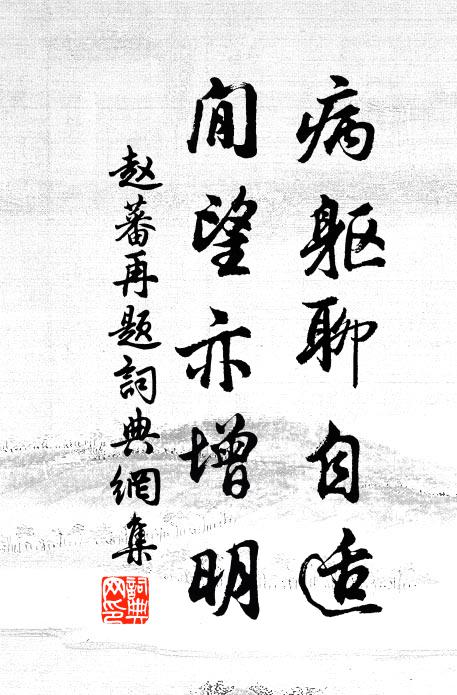 病躯聊自适
闲望亦增明
赵蕃再题詞典網集
詞典网印